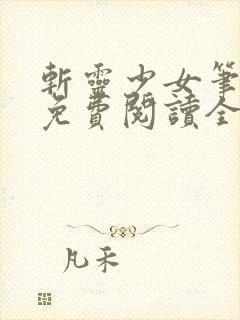 斬靈少女筆
免費閱讀全
凡禾